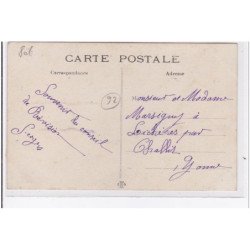 806
CARTE POSTALE
Correspondance
Adresse
92
Souvenir du conseil
de Révision
Monsieur et Madame
Marsigny à
par
Chablis
Yonne